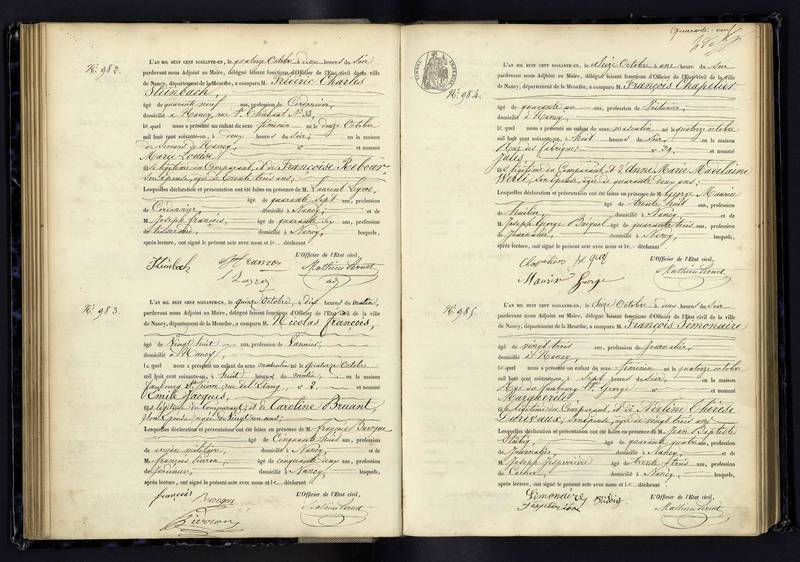 No. 982.
L'AN MIL HUIT CENT SOIXANTE-UN, le quatorze Octobre à deux heures du soir
pardevant nous Adjoint au Maire, délégué faisant fonctions d'Officier de l'Etat civil de la ville
de Nancy, département de la Meurthe, a comparu M. Frédéric Charles
Steinbach,
âgé de quarante neuf ans, profession de Cordonnier,
domicilié à Nancy, rue St. No. 33,
lequel nous a présenté un enfant du sexe féminin né le douze Octobre
mil huit cent soixante-un, à heures du soir, en la maison
à Nancy, no et nommé
Marie Louise
fille légitime du Comparant, et de Françoise Ribour
son épouse, âgée de trente trois ans;
Lesquelles déclaration et présentation ont été faites en présence de M. Laurent
âgé de quarante sept ans, profession
de Cordonnier, domicilié à Nancy, et de
M. Joseph François, âgé de quarante six ans, profession
de domicilié à Nancy, lesquels,
après lecture, ont signé le présent acte avec nous et le déclarant
L'Officier de l'Etat civil,
Steinbach
No. 983.
L'AN MIL HUIT CENT SOIXANTE-UN, le quinze Octobre, à dix heures du matin,
pardevant nous Adjoint au Maire, délégué faisant fonctions d'Officier de l'Etat civil de la ville
de Nancy, département de la Meurthe, a comparu M. Nicolas François,
âgé de vingt huit ans, profession de Vannier,
domicilié à Nancy,
lequel nous a présenté un enfant du sexe masculin né le quatorze Octobre
mil huit cent soixante-un, à huit heures du matin, en la maison
faubourg St. Pierre, no 2, et nommé
Emile Jacques,
fils légitime du Comparant, et de Caroline Bruant,
son Epouse, âgée de vingt un ans;
Lesquelles déclaration et présentation ont été faites en présence de M. François
âgé de Cinquante huit ans, profession
de ancien militaire, domicilié à Nancy, et de
M. François Pierron, âgé de cinquante deux ans, profession
de domicilié à Nancy, lesquels,
après lecture, ont signé le présent acte avec nous et le déclarant
L'Officier de l'Etat civil,
François
Pierron
Quarante-neuf
No. 984.
L'AN MIL HUIT CENT SOIXANTE-UN, le Seize Octobre à une heure du soir
pardevant nous Adjoint au Maire, délégué faisant fonctions d'Officier de l'Etat civil de la ville
de Nancy, département de la Meurthe, a comparu M. François Chapelier
âgé de quarante un ans, profession de Voiturier,
domicilié à Nancy,
lequel nous a présenté un enfant du sexe masculin né le quatorze octobre
mil huit cent soixante-un, à huit heures du soir, en la maison
Rue des fabriques no 39, et nommé
Jules,
fils légitime du Comparant, et d'Anne Marie Madelaine
son épouse, âgée de quarante deux ans;
Lesquelles déclaration et présentation ont été faites en présence de M. George Maurice
âgé de trente huit ans, profession
de domicilié à Nancy et de
M. Joseph George âgé de quarante trois ans, profession
de Journalier, domicilié à Nancy, lesquels,
après lecture, ont signé le présent acte avec nous et le déclarant
L'Officier de l'Etat civil,
Maurice George
No. 985.
L'AN MIL HUIT CENT SOIXANTE-UN, le Seize Octobre à deux heures du soir
pardevant nous Adjoint au Maire, délégué faisant fonctions d'Officier de l'Etat civil de la ville
de Nancy, département de la Meurthe, a comparu M. François Simonaire
âgé de vingt trois ans, profession de journalier,
domicilié à Nancy,
lequel nous a présenté un enfant du sexe féminin né le quatorze octobre
mil huit cent soixante-un, à sept heures du soir, en la maison
Rue du faubourg St. George no et nommé
Marguerite
fille légitime du Comparant et de Adeline Thérèse
son épouse, âgée de vingt trois ans
Lesquelles déclaration et présentation ont été faites en présence de M. Jean Baptiste
âgé de quarante quatre ans, profession
de Journalier, domicilié à Nancy, et de
M. Joseph âgé de trente trois ans, profession
de Cocher, domicilié à Nancy, lesquels,
après lecture, ont signé le présent acte avec nous et le déclarant
L'Officier de l'Etat civil,
Simonaire